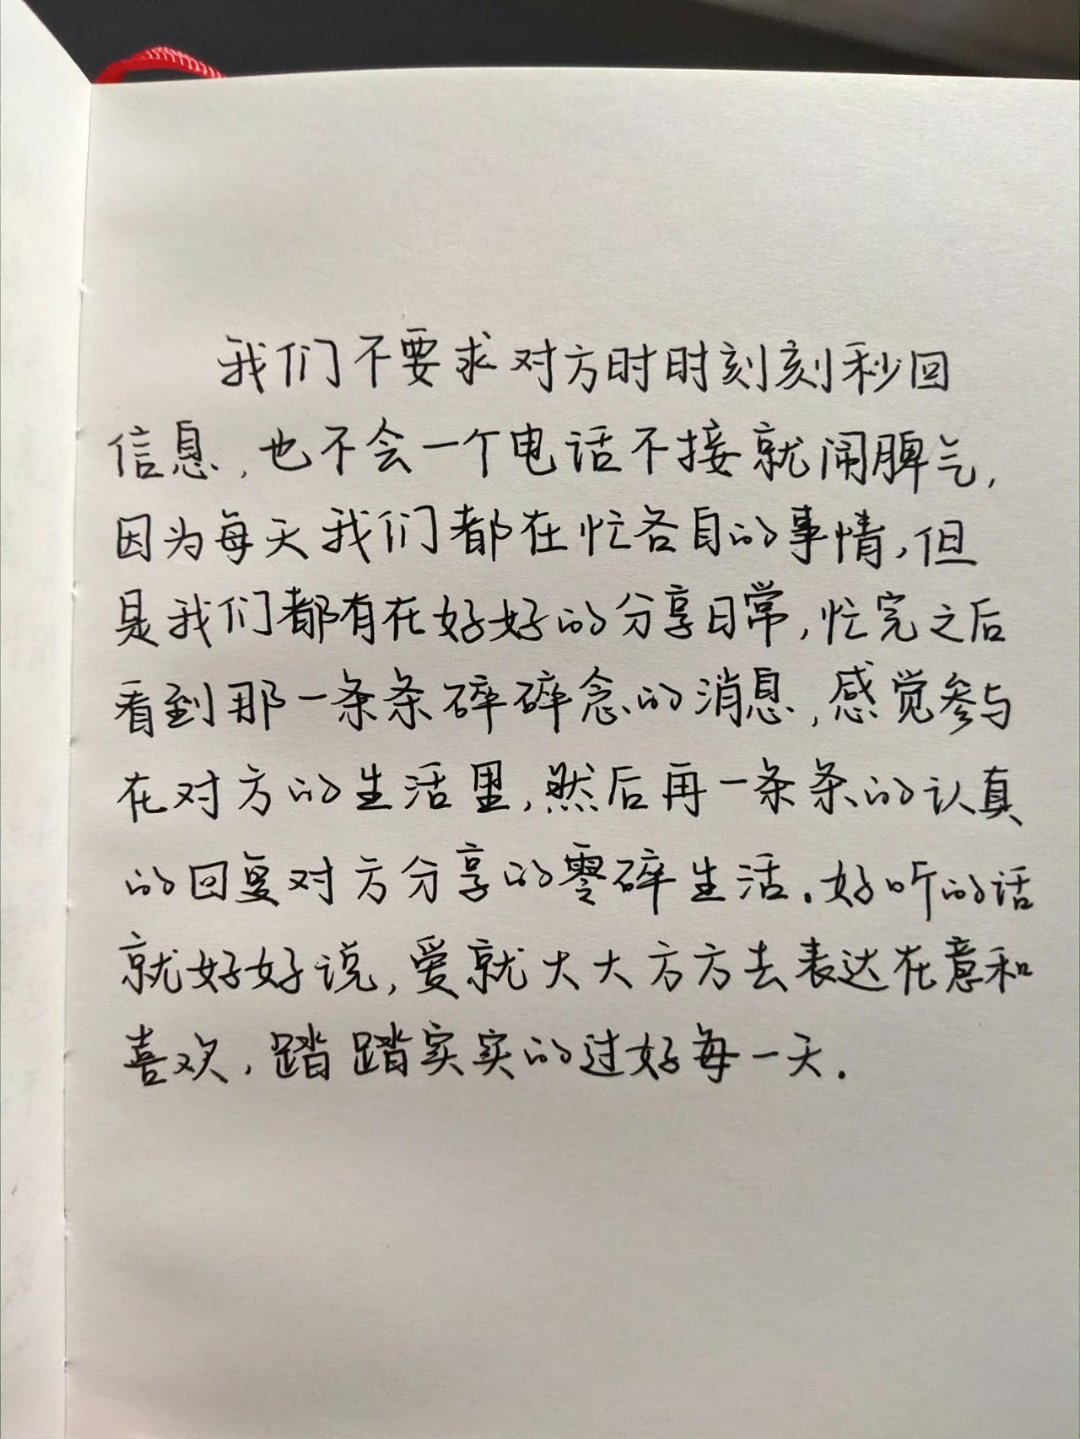 我们不要求对方时时刻刻秒回
信息，也不会一个电话不接就闹脾气，
因为每天我们都在忙各自的事情，但
是我们都有在好好的分享日常，忙完之后
看到那一条条碎碎念的消息，感觉参与
在对方的生活里，然后再一条条的认真
的回复对方分享的零碎生活。好听的话
就好好说，爱就大大方方去表达在意和
喜欢，踏踏实实的过好每一天。